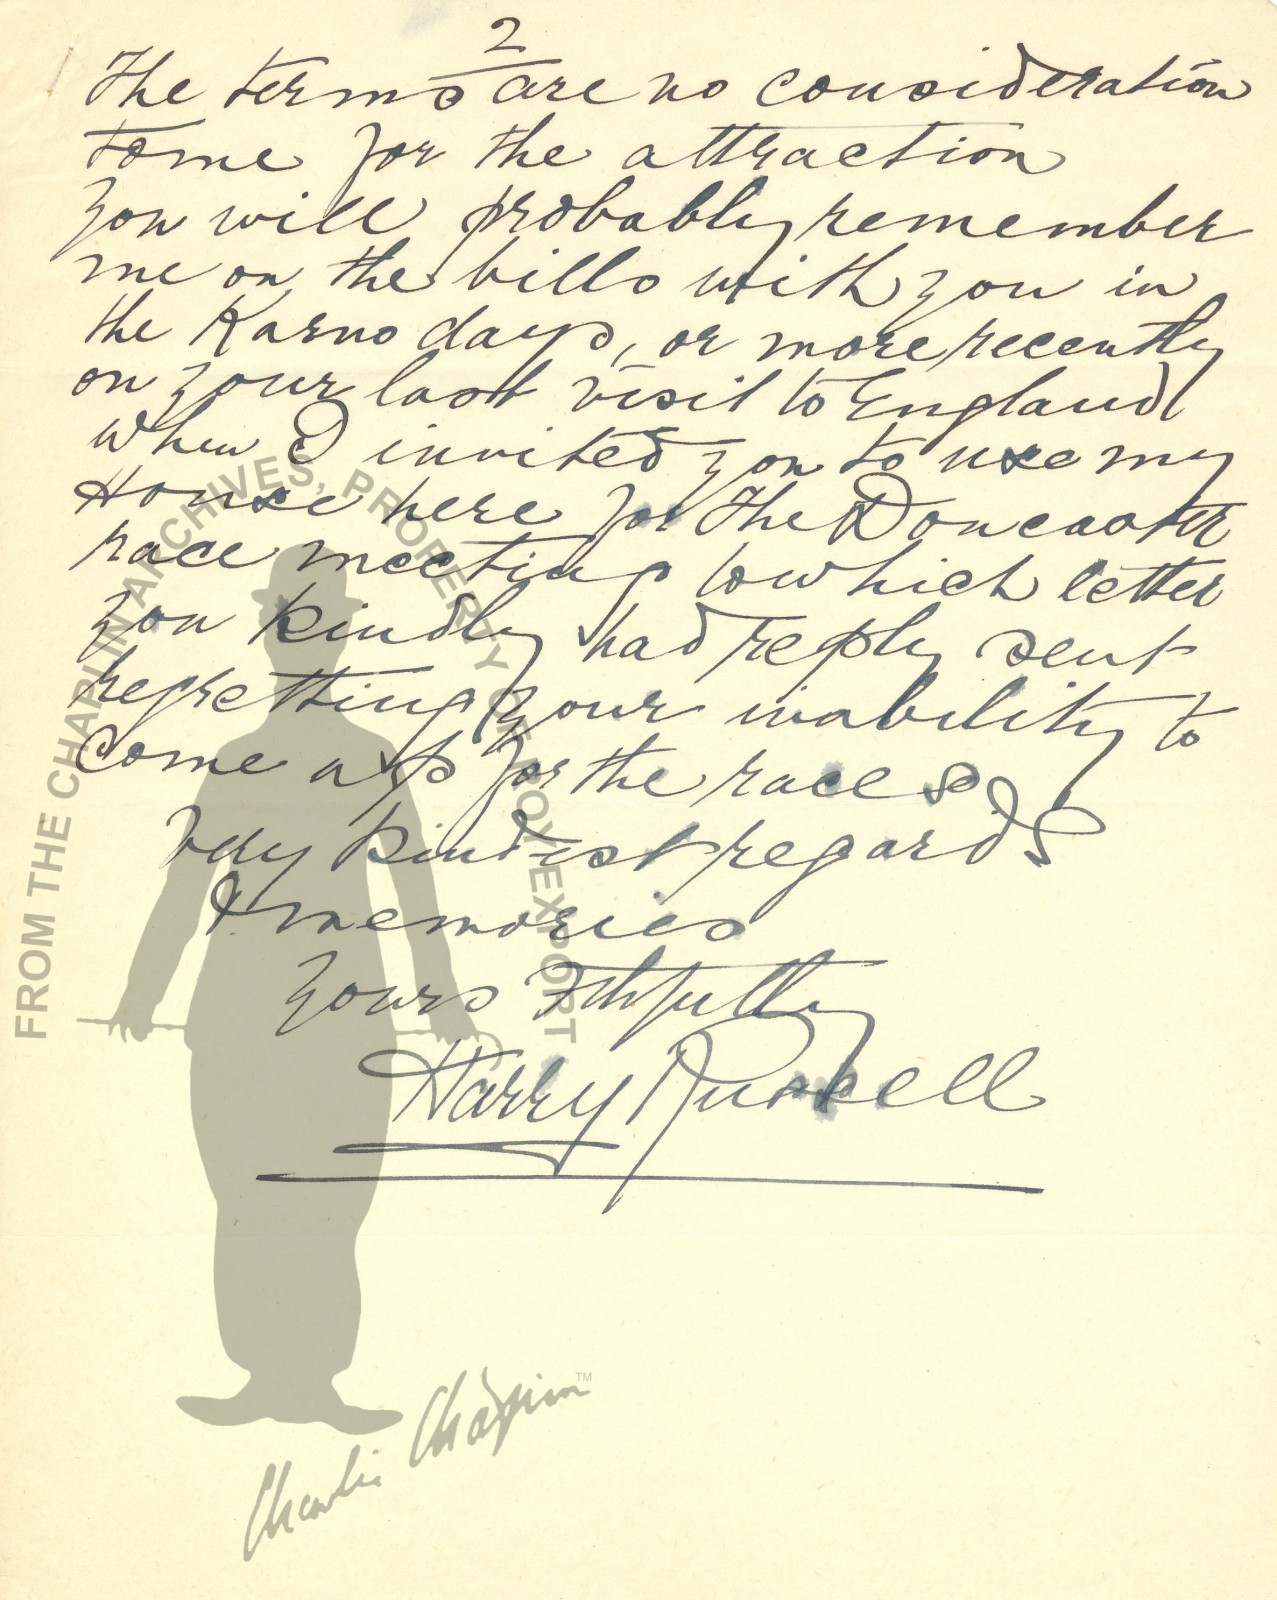 2
The terms are no consideration
to me for the attraction
You will probably remember
me on the bills with you in
the Karno days, or more recently
on your last visit to England
when I invited you to use my
House here for the Doncaster
race meeting to which letter
you kindly had reply sent
regretting your inability to
come up for the races
Very kindest regards
& memories
Yours Fthfully
Harry Russell
FROM THE CHAPLIN ARCHIVES, PROPERTY OF ROY EXPORT
Charlie Chaplin TM